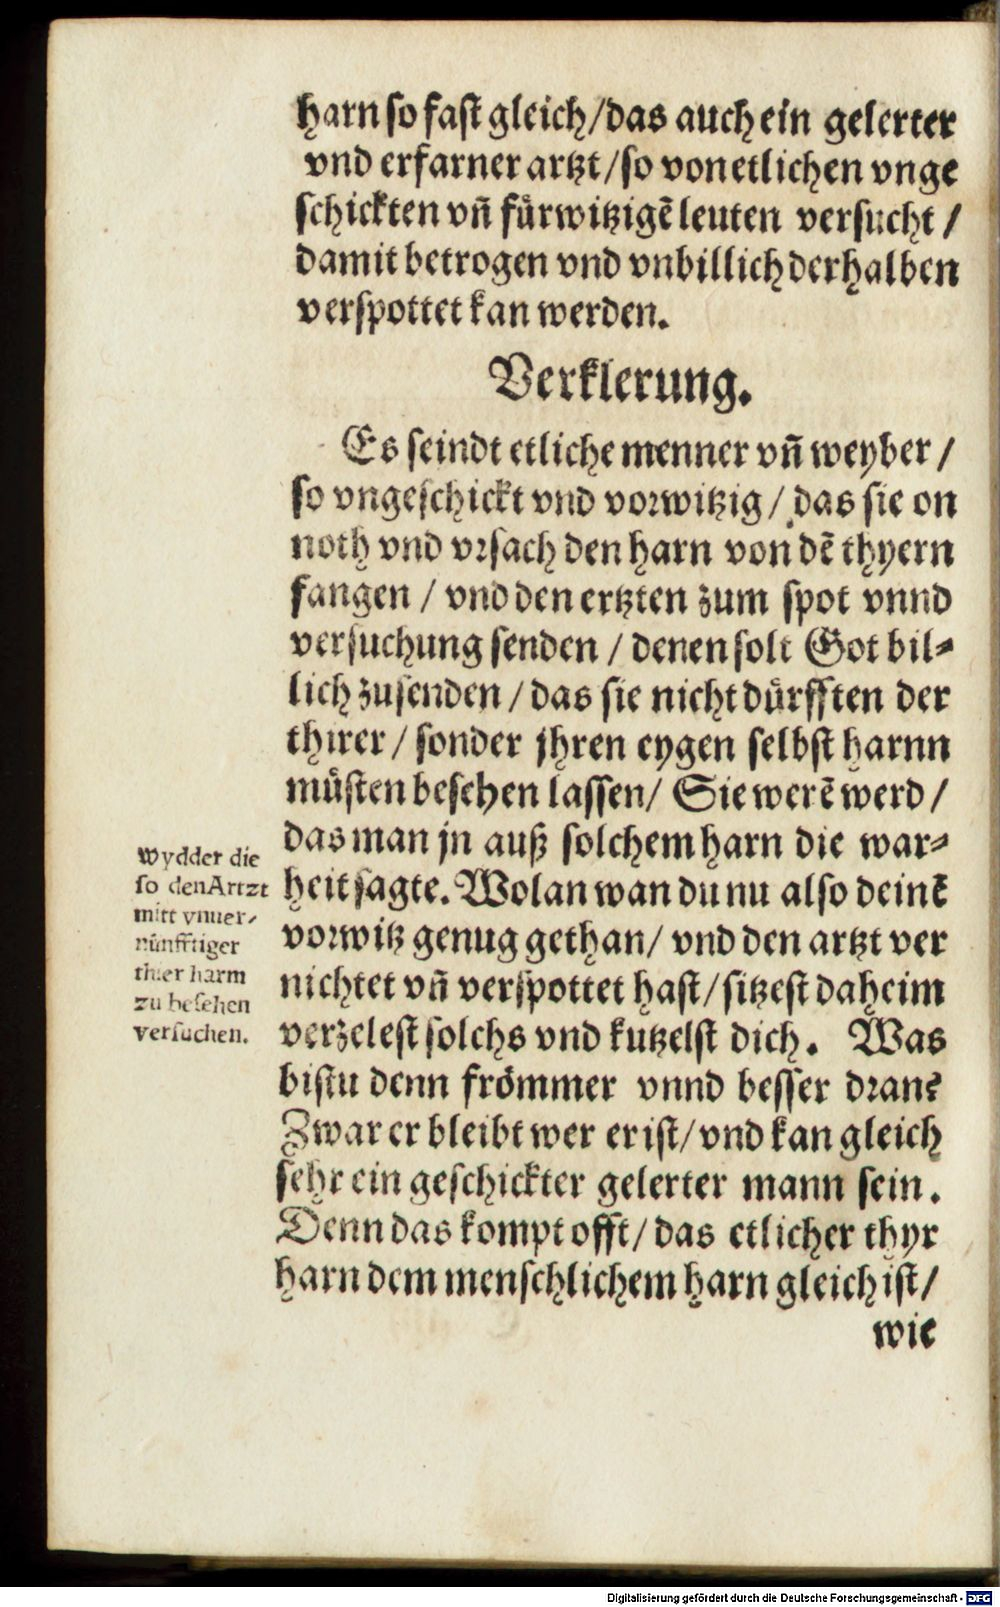 harn so fast gleich/das auch ein gelerter
vnd erfarner artzt/so von etlichen vnge
schickten vñ fürwitzigē leuten versucht/
damit betrogen vnd vnbillich derhalben
verspottet kan werden.
Verklerung.
Es seindt etliche menner vñ weyber/
so vngeschickt vnd vorwitzig/das sie on
noth vnd vrsach den harn von dē thyern
fangen/vnd den ertzten zum spot vnnd
versuchung senden/denen solt Got bil-
lich zusenden/das sie nicht dürfften der
thirer/sonder jhren eygen selbst harnn
müsten besehen lassen/Sie werē werd/
das man jn auß solchem harn die war-
heit sagte. Wolan wan du nu also deinē
vorwitz genug gethan/vnd den artzt ver
nichtet vñ verspottet hast/sitzest daheim
verzelest solchs vnd kutzelst dich. Was
bistu denn frömmer vnnd besser dran?
Zwar er bleibt wer er ist/vnd kan gleich
sehr ein geschickter gelerter mann sein.
Denn das kompt offt/das etlicher thyr
harn dem menschlichem harn gleich ist/
wie
Wydder die
so den Artzt
mitt vnuer-
nünfftiger
thier harm
zu besehen
versuchen.
Digitalisierung gefördert durch die Deutsche Forschungsgemeinschaft - DFG